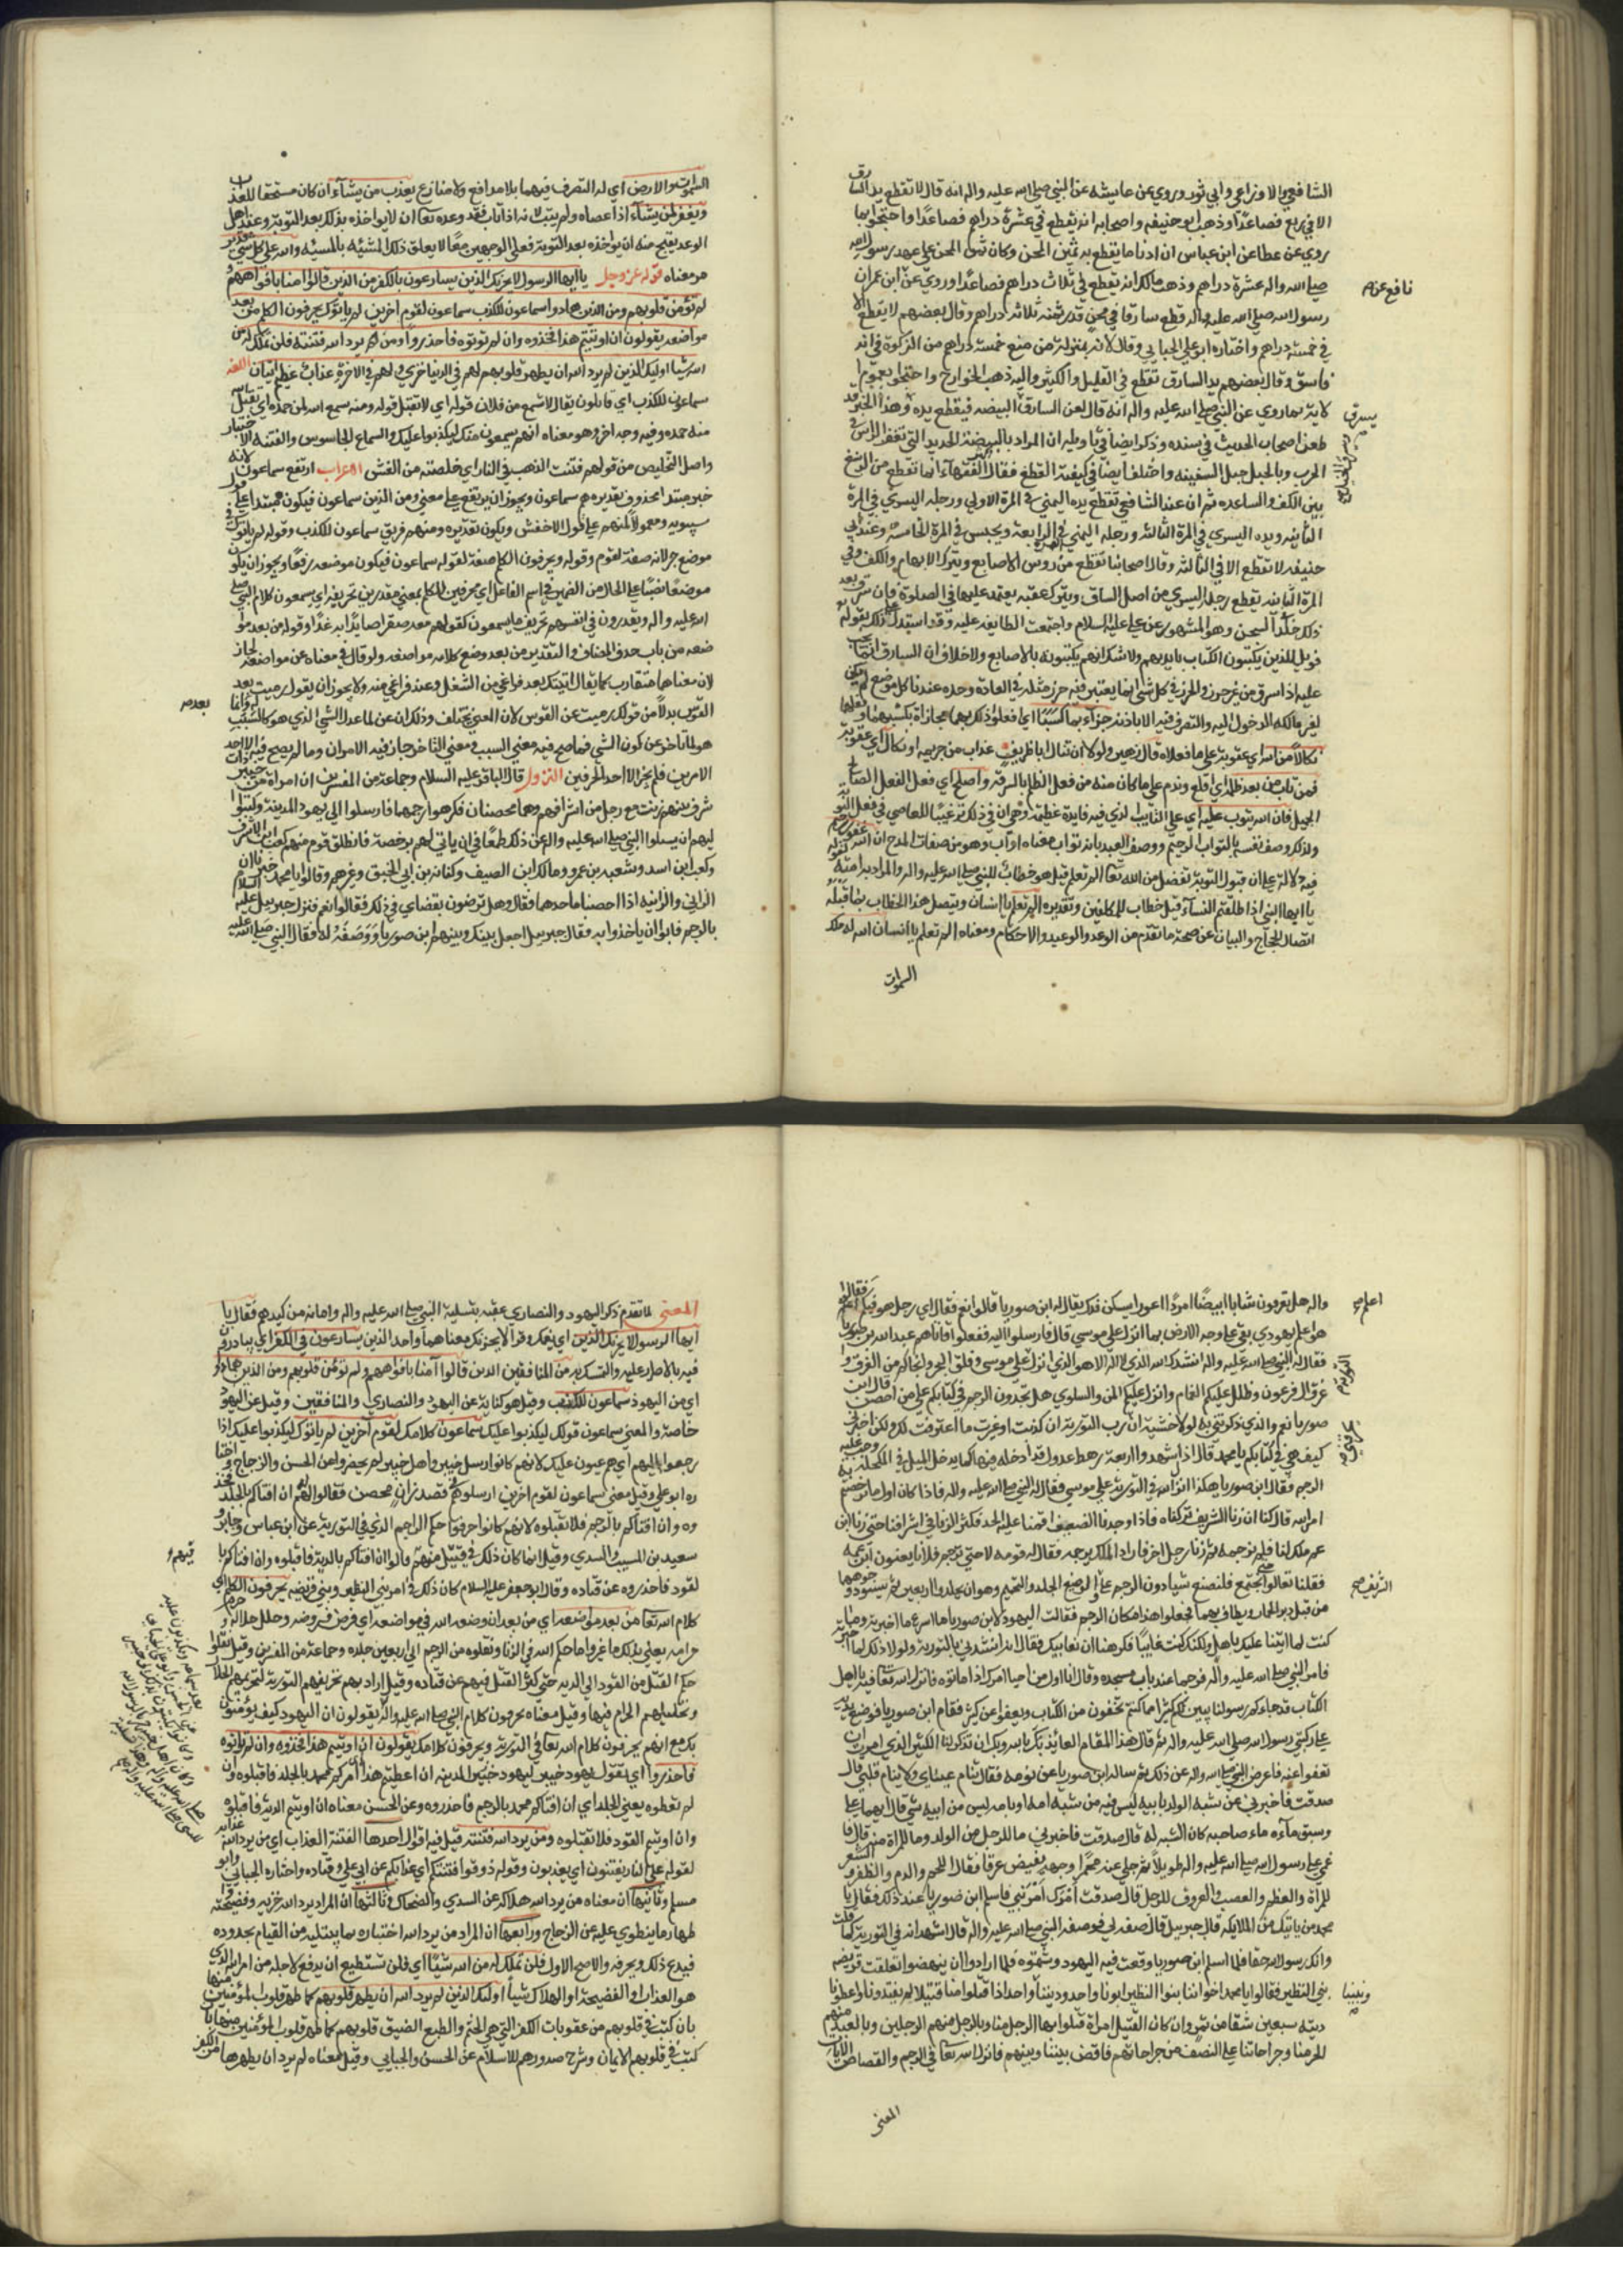 الشافعي والاوزاعي وابي ثور وروي عن عايشه عن النبي صلى الله عليه واله انه قال لا تقطع يد السارق
الا في ربع فصاعدا وذهب ابو حنيفه واصحابه انه يقطع في عشرة دراهم فصاعدا واحتجوا بما
روي عن عطا عن ابن عباس ان ادنا ما يقطع به ثمن المجن وكان ثمن المجن على عهد رسول الله
صلى الله واله عشرة دراهم وذهب مالك انه يقطع في ثلاث دراهم فصاعدا وروي عن ابن عمر ان
نافع عن
رسول الله صلى الله عليه واله قطع سارقا في مجن قدر ثمنه ثلاثه دراهم وقال بعضهم لا يقطع الا
في خمسة دراهم واختاره ابو علي الجبايي وقال لانه بمنزلة من منع خمسة دراهم من الزكوة في انه
فاسق وقال بعضهم يد السارق تقطع في القليل والكثير واليه ذهب الخوارج واحتجوا بعموم
الاية بما روي عن النبي صلى الله عليه واله انه قال لعن السارق البيضه فيقطع يده وهذا الخبر قد
يسرق
طعن اصحاب الحديث في سنده وذكر ايضا في تاويله ان المراد بالبيضة الحديد التي تغفر الراس في
الحرب وبالحبل حبل السفينه واختلف ايضا في كيفية القطع فقال الفقهآء انما تقطع من الرسغ
بين الكف والساعد ثم ان عند الشافعي تقطع يده اليمني في المرة الاولي ورجله اليسري في المرة
الثانيه ويده اليسري في المرة الثالثه ورجله اليمني في الرابعة ويحبس في المرة الخامسة وعند ابي
حنيفه لا تقطع الا في الثالثه وقال اصحابنا تقطع من روس الاصابع ويترك الابهام والكف وفي
المرة الثانيه يقطع رجله اليسري من اصل الساق ويترك عقبه يعتمد عليها في الصلوة فان سرق بعد
ذلك خلد السجن وهو المشهور عن علي عليه السلام واجتمعت الطايفه عليه وقد استدل على ذلك بقوله
فويل للذين يكتبون الكتاب بايديهم ولا شك انهم يكتبونه بالاصابع ولا خلاف ان السارق انما يجب
عليه اذا سرق من غير حرز والحرز في كل شي انما يعتبر فيه حرز مثله في العادة وحده عندنا كل موضع لم يكن
لغير مالكه الدخول اليه والتصرف فيه الا باذنه جزآء بما كسبا اي افعلوا ذلك بهما مجازاة بكسبهما وفعلهما
نكالا من الله اي عقوبة على ما فعلاه قال زهير ولولا ان ينال ابا طريف عذاب من خزيمه او نكال اي عقوبة
فمن تاب من بعد ظلمه اي اقلع وندم على ما كان منه من فعل الظلم بالسرقة واصلح اي فعل الفعل الصالح
الجميل فان الله يتوب عليه اي على التايب
فيه دلالة على ان قبول التوبة تفضل من الله تعا الم تعلم قيل هو خطاب للنبي صلى الله عليه واله والمراد به امته
يا ايها النبي اذا طلقتم النسآء قيل خطاب للمكلفين وتقديره الم تعلم يا انسان ويتصل هذا الخطاب بما قبله
اتصال الحجاج والبيان عن صحة ما تقدم من الوعد والوعيد والاحكام ومعناه الم تعلم يا انسان ان الله له ملك
السموات
السموات والارض اي له التصرف فيهما بلا مدافع ولا منازع يعذب من يشآء ان كان مستحقا للعذاب
ويغفر لمن يشآء اذا عصاه ولم يتب لانه اذا تاب فقد وعده تعا ان لا يواخذه بذلك بعد التوبة وعند اهل
الوعد يقبح منه ان يواخذه بعد التوبة فعلى الوجهين معا لا يعلق ذلك المشيئه بالمسئيه والله على كل شي قدير
مر معناه قوله عز وجل يا ايها الرسول لا يحزنك الذين يسارعون بالكفر من الذين قالوا امنا بافواههم
لم تؤمن قلوبهم ومن الذين هادوا سماعون للكذب سماعون لقوم اخرين لم ياتوك يحرفون الكلم من بعد
مواضعه يقولون ان اوتيتم هذا فخذوه وان لم توتوه فاحذروا ومن لم يرد الله فتنته فلن تملك له من
الله شيا اوليك الذين لم يرد الله ان يطهر قلوبهم لهم في الدنيا خزي ولهم في الاخرة عذاب عظيم ايتان اللغة
سماعون للكذب اي قابلون يقال لا تسمع من فلان قوله اي لا تقبل قوله ومنه سمع الله لمن حمده اي يقبل
منه حمده وفيه وجه اخر وهو معناه انهم يسمعون منك ليكذبوا عليك والسماع الجاسوس والفتنه الاختبار
واصل التخليص من قولهم فتنت الذهب في النار اي خلصته من الغش الاعراب ارتفع سماعون لانه
خبر مبتدا محذوف تقديره هم سماعون ويجوز ان يرتفع على معني ومن الذين سماعون فيكون مبتدا على قول
سيبويه ومعمولا لمنهم على قول الاخفش ويكون تقديره ومنهم فريق سماعون للكذب وقوله لم ياتوك في
موضع جر لانه صفة لقوم وقوله ويحرفون الكلم صفة لقوله سماعون فيكون موضعه رفعا ويجوز ان يكون
موضعه نصبا على الحال من الضمير في اسم الفاعل اي محرفين للكلم بمعني مقدرين تحريفه اي يسمعون كلام النبي صلى
الله عليه واله ويقدرون في انفسهم تحريف ما يسمعون كقولهم معه صقر صايدا به غدا وقوله من بعد موا
ضعه من باب حذف المضاف والتقدير من بعد وضع كلامه مواضعه ولو قال في معناه عن مواضعه لجاز
لان معناهما متقارب كما يقال اتيتك بعد فراغي من الشغل وعند فراغي منه ولا يجوز ان يقول رميت بعد
القوس بدلا من قولك رميت عن القوس لان المعني يختلف وذلك ان عن لما عدا الشي الذي هو كالسبب
بعد
هو لما تاخر عن كون الشي فما صح فيه معني السبب ومعني التاخر جاز فيه الامران وما لم يصح فيه الا احد
الامرين فلم يجز الا احد الحرفين النزول قال الباقر عليه السلام وجماعة من المفسرين ان امراة من خيبر ذات
شرف بينهم زنت مع رجل من اشرافهم وهما محصنان فكرهوا رجمهما فارسلوا الى يهود المدينة وكتبوا
اليهم ان يسلوا النبي صلى الله عليه واله عن ذلك طمعا في ان ياتي لهم برخصة فانطلق قوم منهم كعب بن الاشرف
وكعب ابن اسد وشعبه بن عمرو ومالك ابن الصيف وكنانه بن ابي الحقيق وغيرهم وقالوا يا محمد خبرنا عن
الزاني والزانيه اذا احصنا ما حدهما فقال وهل ترضون بقضاي في ذلك فقالوا نعم فنزل جبرييل عليه السلام
بالرجم فابوا ان ياخذوا به فقال جبرييل اجعل بينك وبينهم ابن صوريا ووصفه له فقال النبي صلى الله عليه
واله هل تعرفون شابا ابيضا امردا اعور يسكن فدك يقال له ابن صوريا قالوا نعم فقال اي رجل هو فيكم فقالوا
اعلم
هو اعلم يهودي بقي على وجه الارض بما انزل على موسي قال فارسلوا اليه ففعلوا فاتاهم عبد الله بن صوريا
فقال له النبي صلى الله عليه واله انشدك الله الذي لا اله الا هو الذي انزل على موسي وفلق البحر وانجاكم من الغرق وا
التورية
غرق ال فرعون وظلل عليكم الغمام وانزل عليكم المن والسلوي هل تجدون الرجم في كتابكم على من احصن قال ابن
صوريا نعم والذي ذكرتني به لولا خشية ان رب التورية ان كذبت او غيرت ما اعترفت لك ولكن اخبرني
كيف هي في كتابكم يا محمد قال اذا شهد اربعة رهط عدول قد ادخله فيها كما يدخل الميل في المكحلة وجب عليه
الرجم فقال ابن صوريا هكذا انزل الله في التورية على موسي فقال له النبي صلى الله عليه واله فاذا كان اول ما ترخصتم
امر الله قال كنا اذا زنا الشريف تركناه واذا وجدنا الضعيف اقمنا عليه الحد فكثر الزنا في اشرافنا حتى زنا ابن
عم ملك لنا فلم نرجمه ثم زنا رجل اخر فاراد الملك يرجمه فقال له قومه لا حتى ترجم فلانا يعنون ابن عمه
فقلنا تعالوا نجتمع فلنصنع شيا دون الرجم
الشريف
من قبل دبر الحمار ويطاف بهما فجعلوا هذا مكان الرجم فقالت اليهود لابن صوريا ما اسرع ما اخبرته وما
كنت لما اثنينا عليك باهل ولكنك كنت غايبا فكرهنا ان نعايبك فقال انه انشدني بالتورية ولولا ذلك لما اخبرته
فامر النبي صلى الله عليه واله فرجما عند باب مسجده وقال انا اول من احيا امرك اذا ماتوه فانزل الله تعا فيه يا اهل
الكتاب قد جاءكم رسولنا يبين لكم كثيرا مما كنتم تخفون من الكتاب ويعفوا عن كثير فقام ابن صوريا فوضع يديه
على ركبتي رسول الله صلى الله عليه واله ثم قال هذا المقام العائذ بالله وبك ان تذكر لنا الكثير الذي امرت ان
تعفوا عنه فاعرض النبي صلى الله عليه واله عن ذلك ثم ساله ابن صوريا عن نومه فقال تنام عيناي ولا ينام قلبي قال
صدقت فاخبرني عن شبه الولد بابيه ليس فيه من شبه امه او بامه ليس من ابيه شي قال ايهما على
وسبق ماءه ماء صاحبه كان الشبه له قال صدقت فاخبرني ما للرجل من الولد وما للمراة منه قال فا
غمي على رسول الله صلى الله عليه واله طويلا ثم خلي عنه محمرا وجهه يفيض عرقا فقال اللحم والدم والظفر والشعر
للمراة والعظم والعصب والعروق للرجل قال صدقت امرك امر نبي فاسلم ابن صوريا عند ذلك فقال يا
محمد من ياتيك من الملايكه قال جبرييل قال صفه لي فوصفه النبي صلى الله عليه واله قال اشهد انه في التورية كما قلت
وانك رسول الله حقا فلما اسلم ابن صوريا وقعت فيه اليهود وشتموه فلما ارادوا ان ينهضوا تعلقت قريضه
بني النظير فقالوا يا محمد اخواننا بنوا النظير ابونا واحد وديننا واحد اذا قتلوا منا قتيلا لم يقيدونا واعطونا
ونبينا
ديته سبعين وسقا من تمر وان كان القتيل امراة قتلوا بها الرجل منا وبالرجل منهم الرجلين وبالعبد منهم
الحر منا وجراحاتنا على النصف من جراحاتهم فاقض بيننا وبينهم فانزل الله تعا في الرجم والقصاص الايات
المعنى
المعني لما تقدم ذكر اليهود والنصاري عقبه بتسلية النبي صلى الله عليه واله وامانه من كيدهم فقال يا
ايها الرسول لا يحزنك الذين اي يغمك وقرا لا يحزنك معناهما واحد الذين يسارعون في الكفر اي يبادرون
فيه بالاصرار عليه والتمسك به من المنافقين الذين قالوا آمنا بافواههم ولم تؤمن قلوبهم ومن الذين هادوا
اي من اليهود سماعون للكذب وقيل هو كناية عن اليهود والنصاري والمنافقين وقيل عن اليهود
خاصة والمعني سماعون قولك ليكذبوا عليك سماعون كلامك لقوم آخرين لم ياتوك ليكذبوا عليك اذا
رجعوا اليهم اي هم عيون عليك لانهم كانوا رسل خيبر واهل خيبر لم يحضروا عن الحسن والزجاج واختا
ره ابو علي وقيل معني سماعون لقوم اخرين ارسلوهم في قصة زان محصن فقالوا لهم ان افتاكم بالجلد فخذ
وه وان افتاكم بالرجم فلا تقبلوه لانهم كانوا حرفوا حكم الرجم الذي في التورية عن ابن عباس وجابر و
سعيد بن المسيب والسدي وقيل انما كان ذلك في قتيل منهم قالوا ان افتاكم بالدية فاقبلوه وان افتاكم با
لقود فاحذروه عن قتاده وقال ابو جعفر عليه السلام كان ذلك في امر بني النظير وبني قريضه يحرفون الكلم اي
كلام الله تعا من بعد مواضعه اي من بعد ان وضعه الله في مواضعه اي فرض فروضه وحلل حلاله و
حرامه يعني بذلك ما غيروا ما حكم الله في الزنا ونقلوه من الرجم الى اربعين جلده وجماعة من المفسرين وقيل نقلوا
حكم القتل من القود الي الديه حتى كثر القتل فيهم عن قتاده وقيل اراد بهم تحريفهم التورية لتحريمهم الحلال
وتحليلهم الحرام فيها وقيل معناه يحرفون كلام النبي صلى الله عليه واله يقولون ان اليهود كيف يؤمنون
بك مع انهم يحرفون كلام الله تعا في التورية ويحرفون كلامك يقولون ان اوتيتم هذا فخذوه وان لم توتوه
فاحذروا اي يقول يهود خيبر ليهود المدينه ان اعطيتم هذا اي امركم محمد بالجلد فاقبلوه وان
لم تعطوه يعني الجلد اي ان افتاكم محمد بالرجم فاحذروه وعن الحسن معناه ان اوتيتم الدية فاقبلوه
وان اوتيتم القود فلا تقبلوه ومن يرد الله فتنته قيل فيه اقوال احدها الفتنة العذاب اي من يرد الله عذابه
لقوله على النار يفتنون اي يعذبون وقوله ذوقوا فتنتكم اي عذابكم عن ابي علي وقتاده واختاره الجبايي وابو
مسلم وثانيها ان معناه من يرد الله هلاكه عن السدي والضحاك وثالثها ان المراد يرد الله خزيه وفضيحته
ظهار ما ينطوي عليه عن الزجاج ورابعها ان المراد من يرد الله اختباره بما يبتليه من القيام بحدوده
فيدع ذلك ويحرفه والاصح الاول فلن تملك له من الله شيئا اي فلن تستطيع ان يدفع لاجله من امر الله الذي
هو العذاب او الفضيحة او الهلاك شيئا اوليك الذين لم يرد الله ان يطهر قلوبهم كما طهر قلوب المؤمنين
بان كتب في قلوبهم من عقوبات الكفر التي هي الختم والطبع الضيق قلوبهم كما طهر قلوب المؤمنين منها بان
كتب في قلوبهم الايمان وشرح صدورهم للاسلام عن الحسن والجبايي وقيل معناه لم يرد ان يطهرها من الكفر